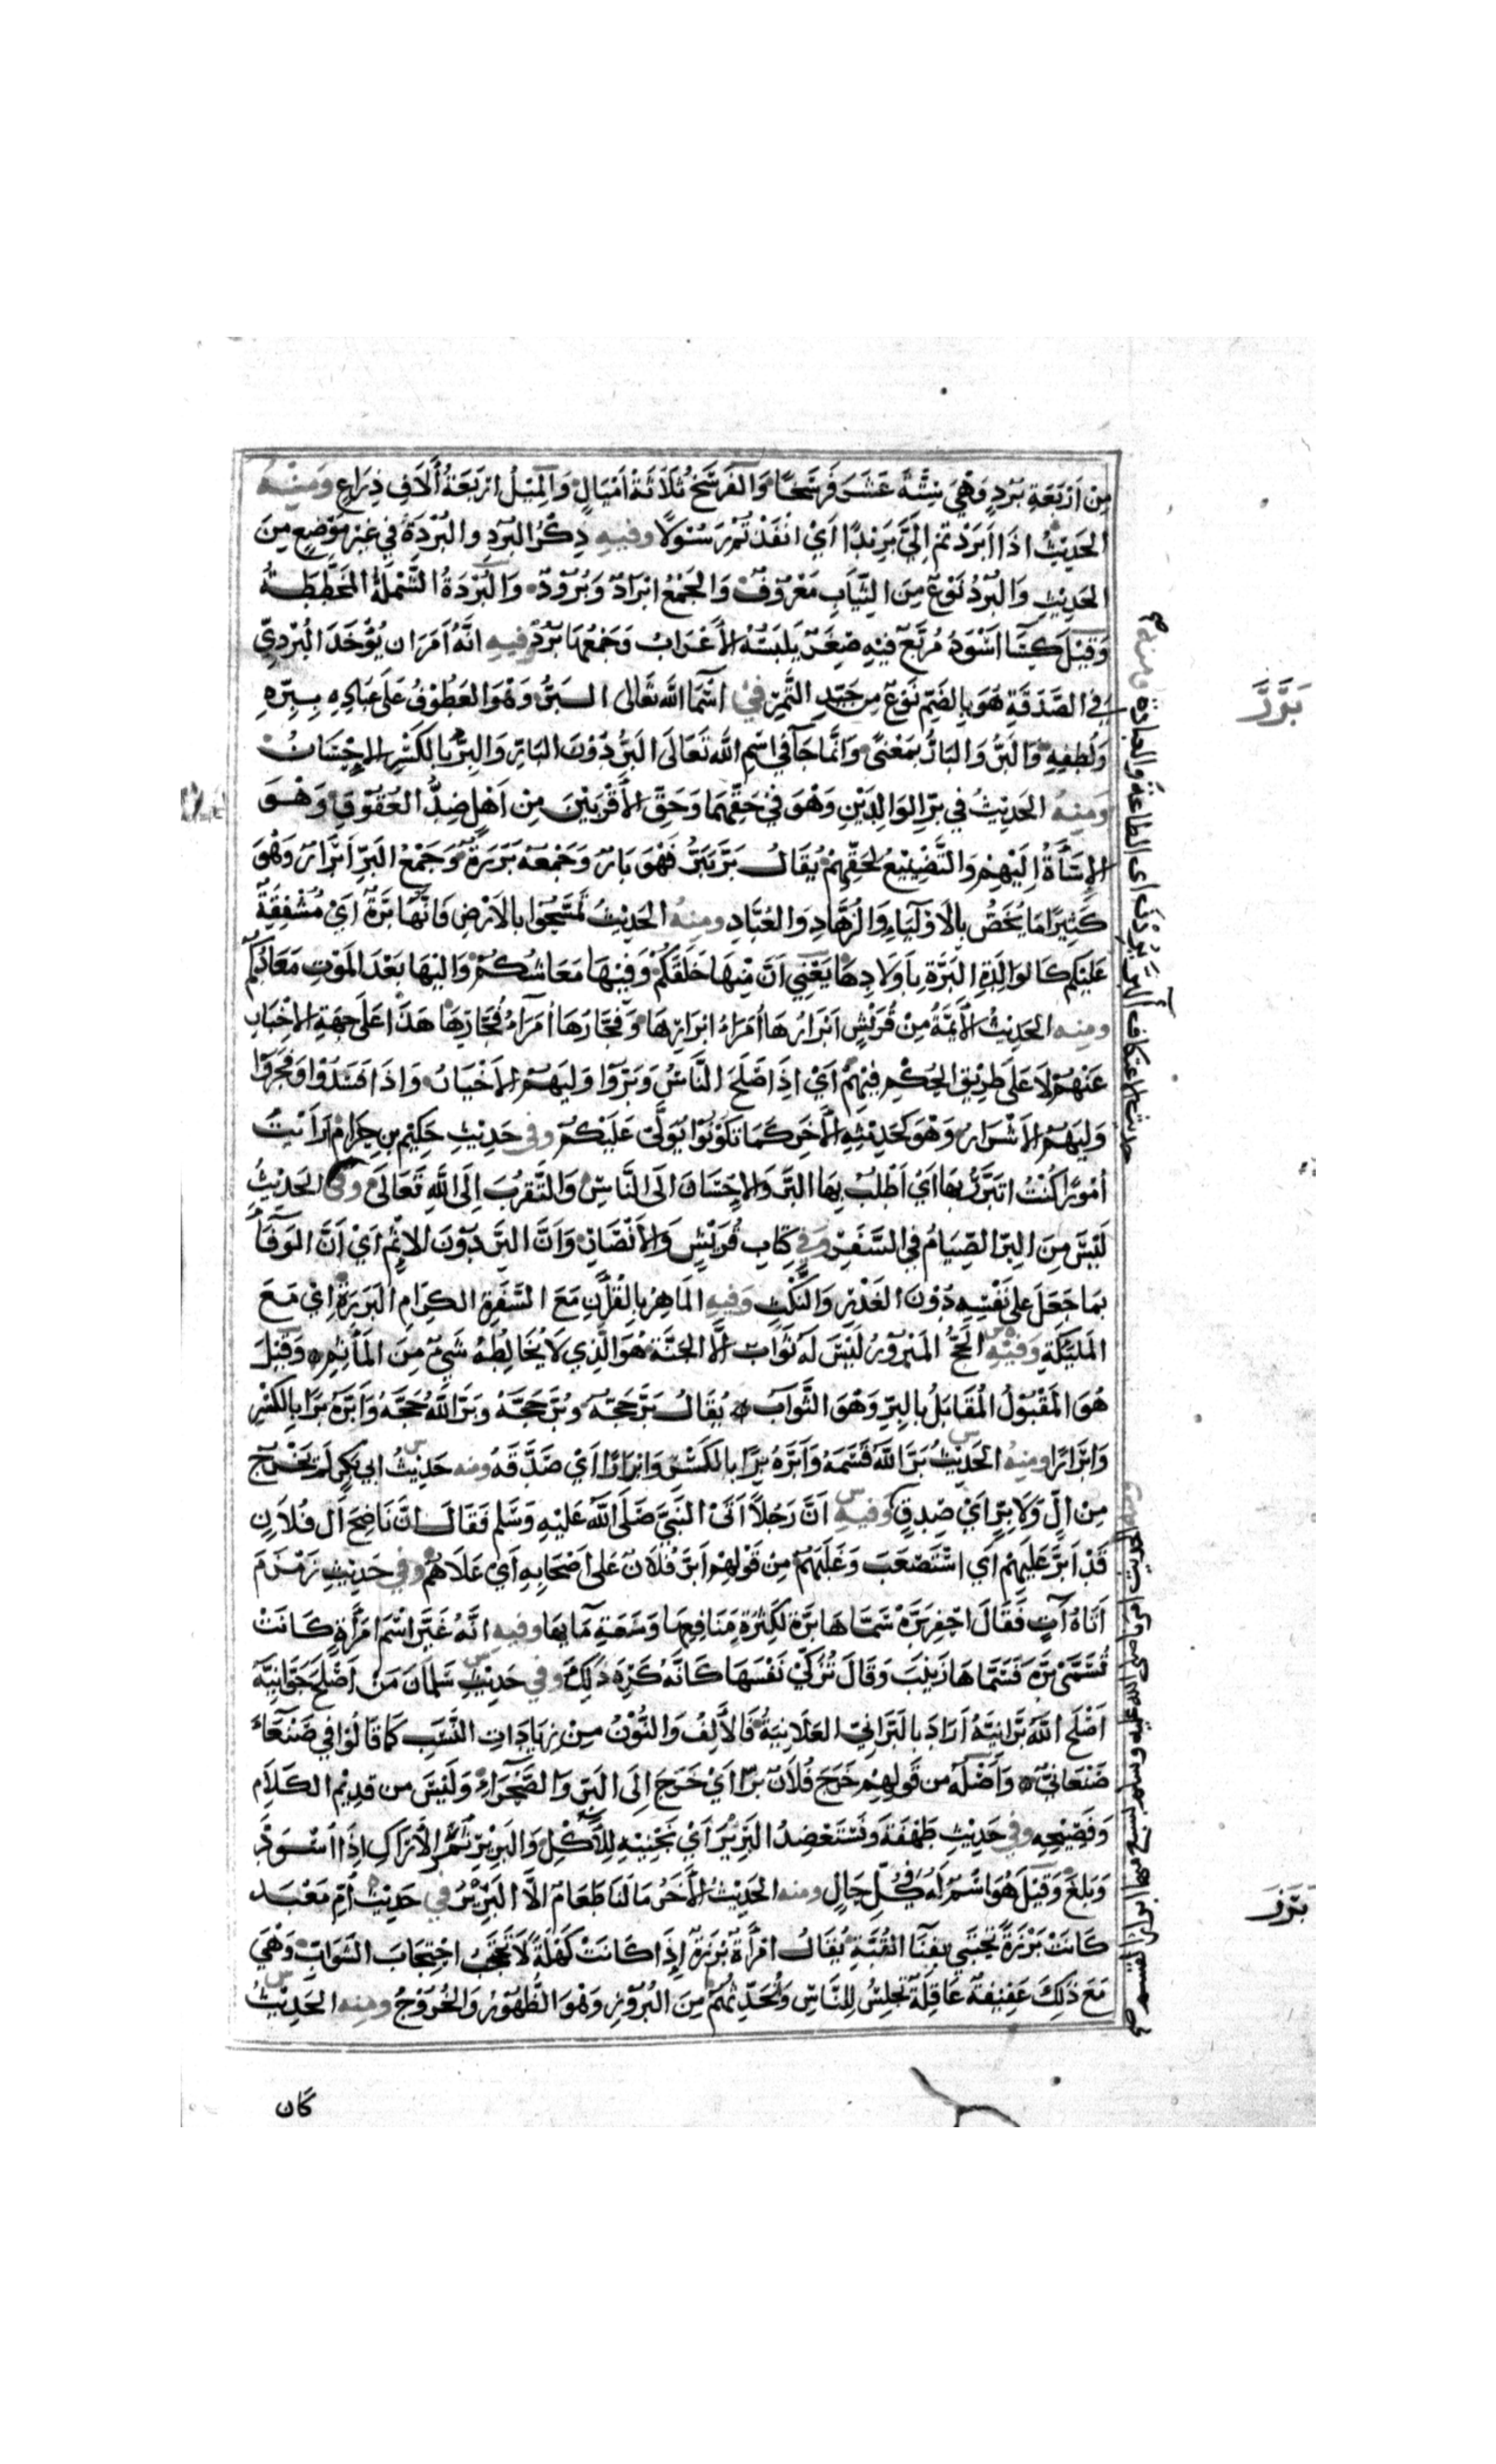 من أربعة برد وهي ستة عشر فرسخا والفرسخ ثلاثة أميال والميل أربعة ألاف ذراع ومنه
الحديث اذا أبردتم إلي بريدا أي انفذتم رسولا وفيه ذكر البرد والبردة في غير موضع من
الحديث والبرد نوع من الثياب معروف والجمع ابراد وبرود والبردة الشملة المخططة
وقيل كساء اسود مربع فيه صغر يلبسه الأعراب وجمعها برد وفيه انه أمر ان يؤخذ البردي
في الصدقة هو بالضم نوع من جيد التمر في اسماء الله تعالى البر وهو العطوف على عباده ببره
ولطفه والبر والبار بمعنى وانما جاء في اسم الله تعالى البر دون البار والبر بالكسر الإحسان
ومنه الحديث في بر الوالدين وهو في حقهما وحق الأقربين من أهل ضد العقوق وهو
الإساءة اليهم والتضييع لحقهم يقال بر يبر فهو بار وجمعه بررة وجمع البر أبرار وهو
كثيرا ما يخص بالأولياء والزهاد والعباد ومنه الحديث تمسحوا بالأرض فانها برة أي مشفقة
عليكم كالوالدة البرة بأولادها يعني أن منها خلقكم وفيها معاشكم واليها بعد الموت معادكم
ومنه الحديث الأئمة من قريش أبرارها أمراء ابرارها وفجارها أمراء فجارها هذا على جهة الإخبار
عنهم لا على طريق الحكم فيهم أي إذا صلح الناس وبروا وليهم الأخيار واذا فسدوا وفجروا
وليهم الأشرار وهو كحديثه الأخر كما تكونوا يولى عليكم وفي حديث حكيم بن حزام أرأيت
أمورا كنت اتبرر بها أي أطلب بها البر والإحسان الى الناس والتقرب إلى الله تعالى وفي الحديث
ليس من البر الصيام في السفر وفي كتاب قريش والأنصار وأن البر دون الاثم أي أن الوفاء
بما جعل على نفسه دون الغدر والنكث وفيه الماهر بالقرآن مع السفرة الكرام البررة اي مع
الملئكة وفيه الحج المبرور ليس له ثواب الا الجنة هو الذي لا يخالطه شيء من المأثم وقيل
هو المقبول المقابل بالبر وهو الثواب يقال بر حجه وبر حجه وبر الله حجه وأبره برا بالكسر
وابرارا ومنه الحديث بر الله قسمه وأبره برا بالكسر وابرارا أي صدقه ومنه حديث ابي بكر لم يخرج
من إل ولا بر أي صدق وفيه أن رجلا أتى النبي صلى الله عليه وسلم فقال ان ناضح آل فلان
قد أبر عليهم أي استصعب وغلبهم من قولهم أبر فلان على أصحابه أي علاهم وفي حديث زمزم
أتاه آت فقال احفر برة سماها برة لكثرة منافعها وسعة مآئها وفيه انه غير اسم امرأة كانت
تسمى برة فسماها زينب وقال تزكي نفسها كانه كره ذلك وفي حديث سلمان من أصلح جوانيه
أصلح الله برانيه أراد بالبراني العلانية فالألف والنون من زيادات النسب كما قالوا في صنعاء
صنعاني وأصله من قولهم خرج فلان برا أي خرج إلى البر والصحراء وليس من قديم الكلام
وفصيحه وفي حديث طهفة ونستعضد البرير أي نجنيه للأكل والبرير ثمر الأراك إذا اسود
وبلغ وقيل هو اسم له في كل حال ومنه الحديث الأخر ما لنا طعام الا البرير في حديث أم معبد
كانت برزة تحتبي بفناء القبة يقال امرأة برزة إذا كانت كهلة لا تحتجب احتجاب الشواب وهي
مع ذلك عفيفة عاقلة تجلس للناس وتحدثهم من البروز وهو الظهور والخروج ومنه الحديث
كان
برر
برز
حديث الاعتكاف البر يردن أي الطاعة والعبادة ومنه